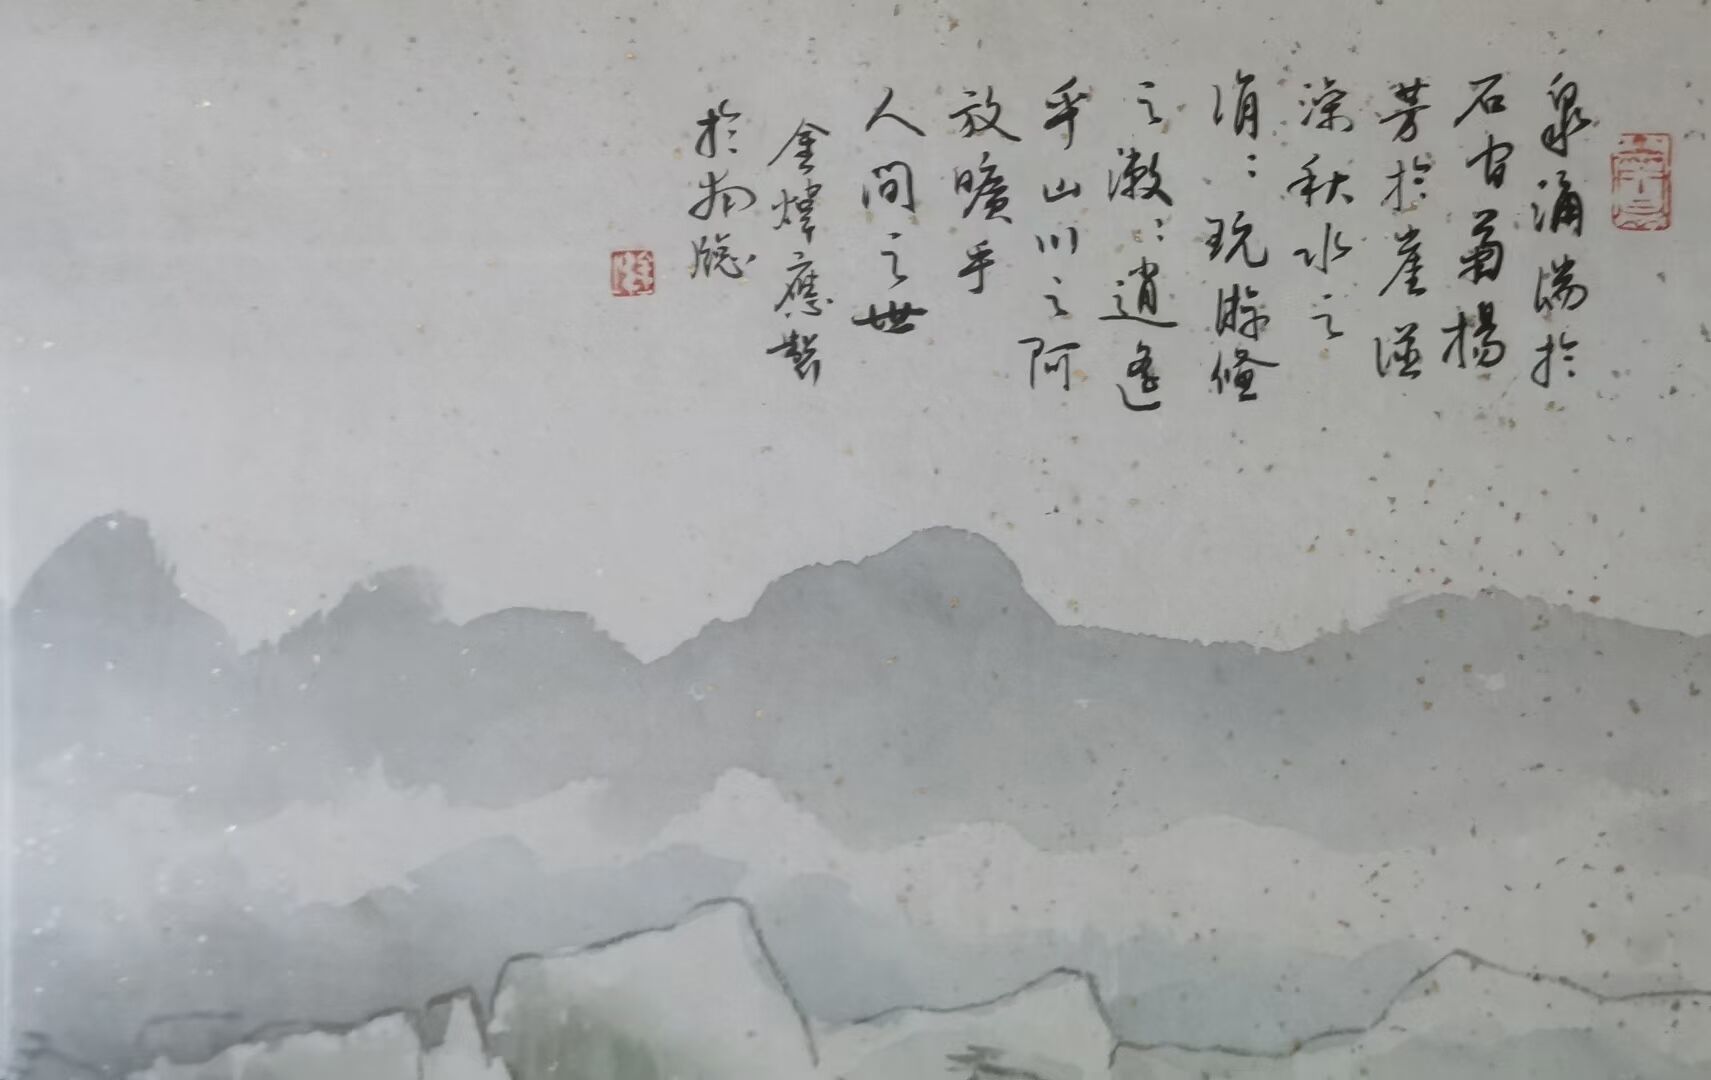 泉涌湍於
石間菊揚
芳於崖澨
澡秋水之
涓〻玩游儵
之潎〻逍遙
乎山川之阿
放曠乎
人間之世
金煒應製
於牕